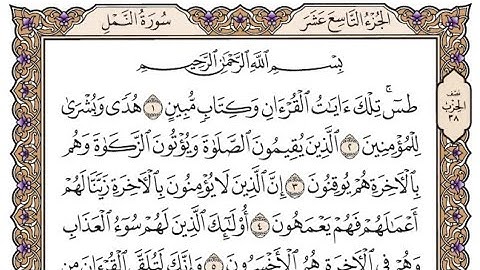 الجُزْءُ التَّاسِعَ عَشَرَ
سُورَةُ النَّمْلِ
نصف
الحزب
٣٨
بِسْمِ ٱللَّهِ ٱلرَّحْمَٰنِ ٱلرَّحِيمِ
طسٓۚ تِلْكَ ءَايَٰتُ ٱلْقُرْءَانِ وَكِتَابٖ مُّبِينٍ ١ هُدٗى وَبُشْرَىٰ
لِلْمُؤْمِنِينَ ٢ ٱلَّذِينَ يُقِيمُونَ ٱلصَّلَوٰةَ وَيُؤْتُونَ ٱلزَّكَوٰةَ وَهُم
بِٱلْأٓخِرَةِ هُمْ يُوقِنُونَ ٣ إِنَّ ٱلَّذِينَ لَا يُؤْمِنُونَ بِٱلْأٓخِرَةِ زَيَّنَّا لَهُمْ
أَعْمَٰلَهُمْ فَهُمْ يَعْمَهُونَ ٤ أُوْلَٰٓئِكَ ٱلَّذِينَ لَهُمْ سُوٓءُ ٱلْعَذَابِ
وَهُمْ فِي ٱلْأٓخِرَةِ هُمُ ٱلْأَخْسَرُونَ ٥ وَإِنَّكَ لَتُلَقَّى ٱلْقُرْءَانَ مِن